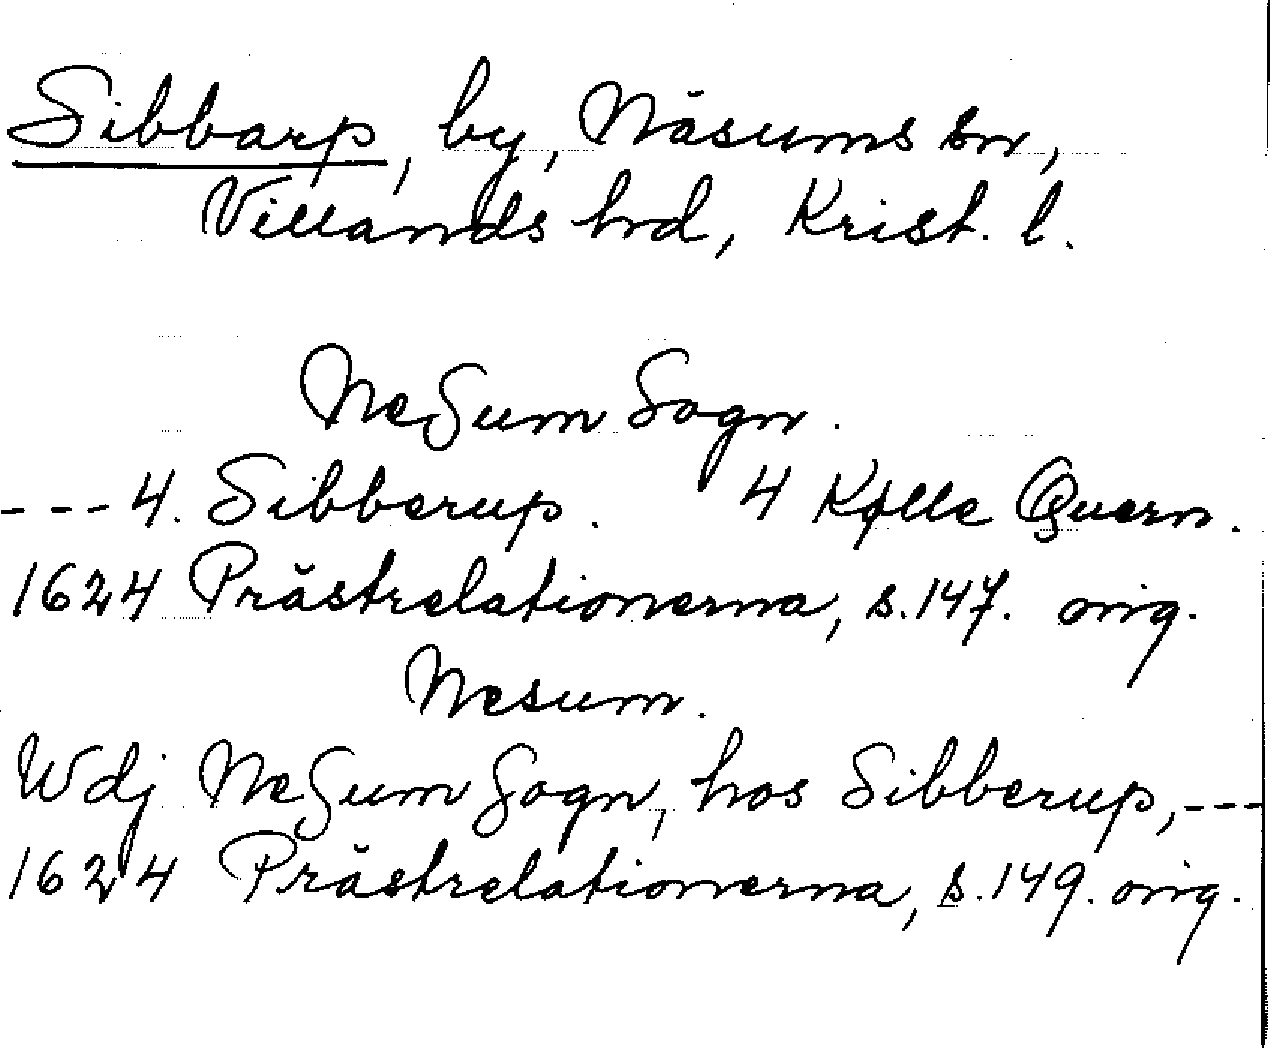 Sibbarp, by, Näsums sn,
Villands hd, Krist. l.
NeSum Sogn.
---4. Sibberup. 4 Kølle Quern.
1624 Prästrelationerna, s.147. orig.
Nesum.
Wdj NeSum Sogn, hos Sibberup,---
1624 Prästrelationerna, s.149. orig.